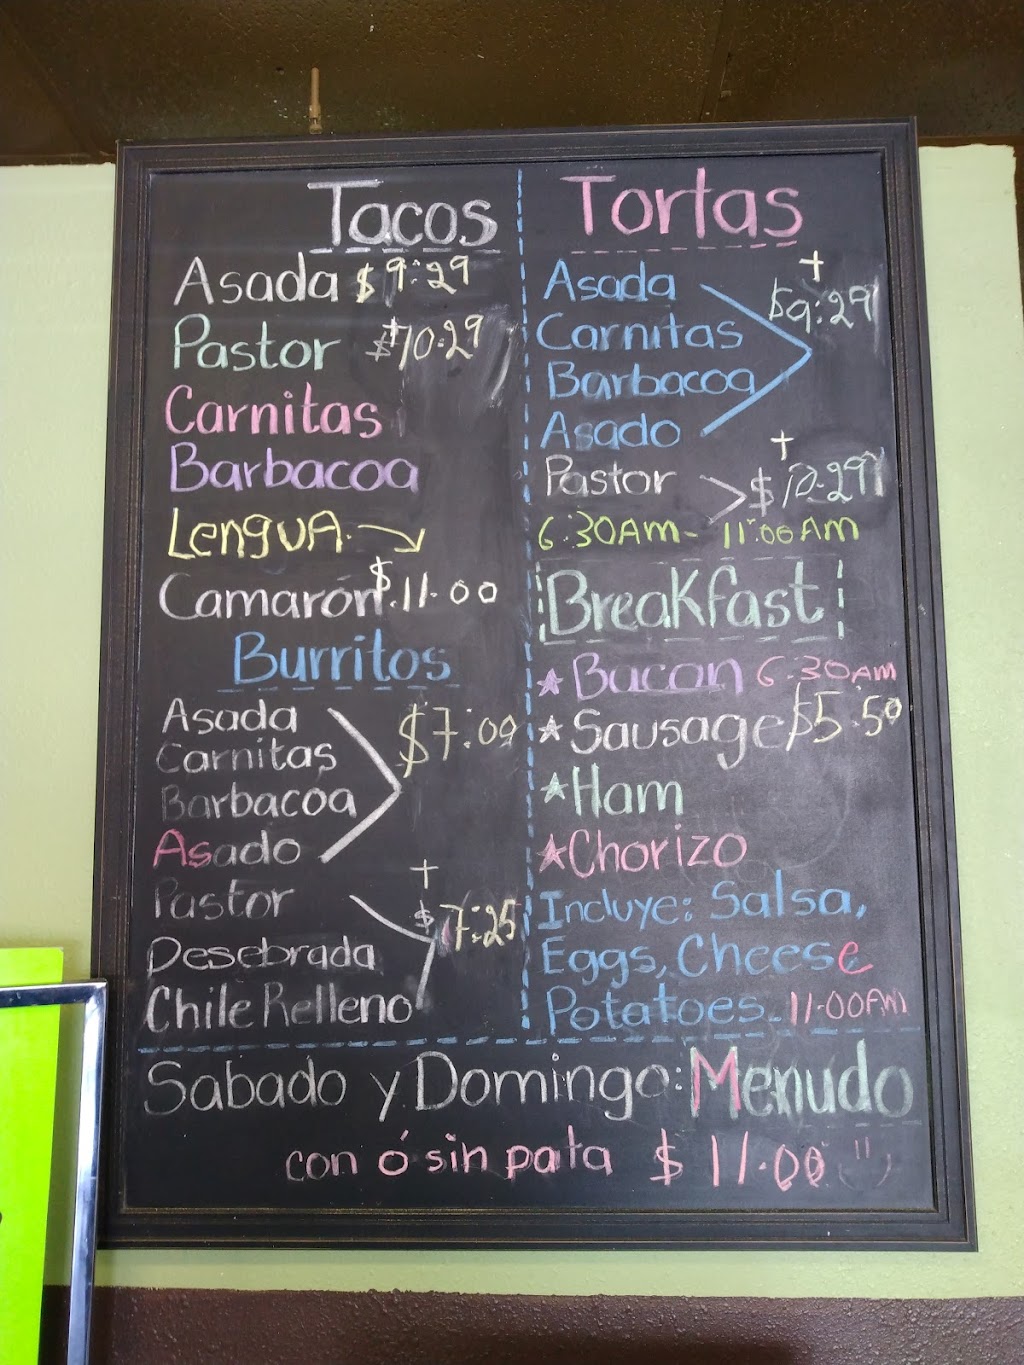 Tacos
Asada $9.29
Pastor $10.29
Carnitas
Barbacoa
Lengua
Camarón $11.00
Burritos
Asada
Carnitas $7.00
Barbacoa
Asado
Pastor +
Desebrada $7.25
Chile Relleno
Tortas
Asada +
Carnitas $9.29
Barbacoa
Asado +
Pastor $10.29
6:30AM - 11:00AM
Breakfast
Bacon 6:30AM
Sausage $5.50
Ham
Chorizo
Incluye: Salsa,
Eggs, Cheese
Potatoes - 11:00AM
Sabado y Domingo: Menudo
con ó sin pata $11.00